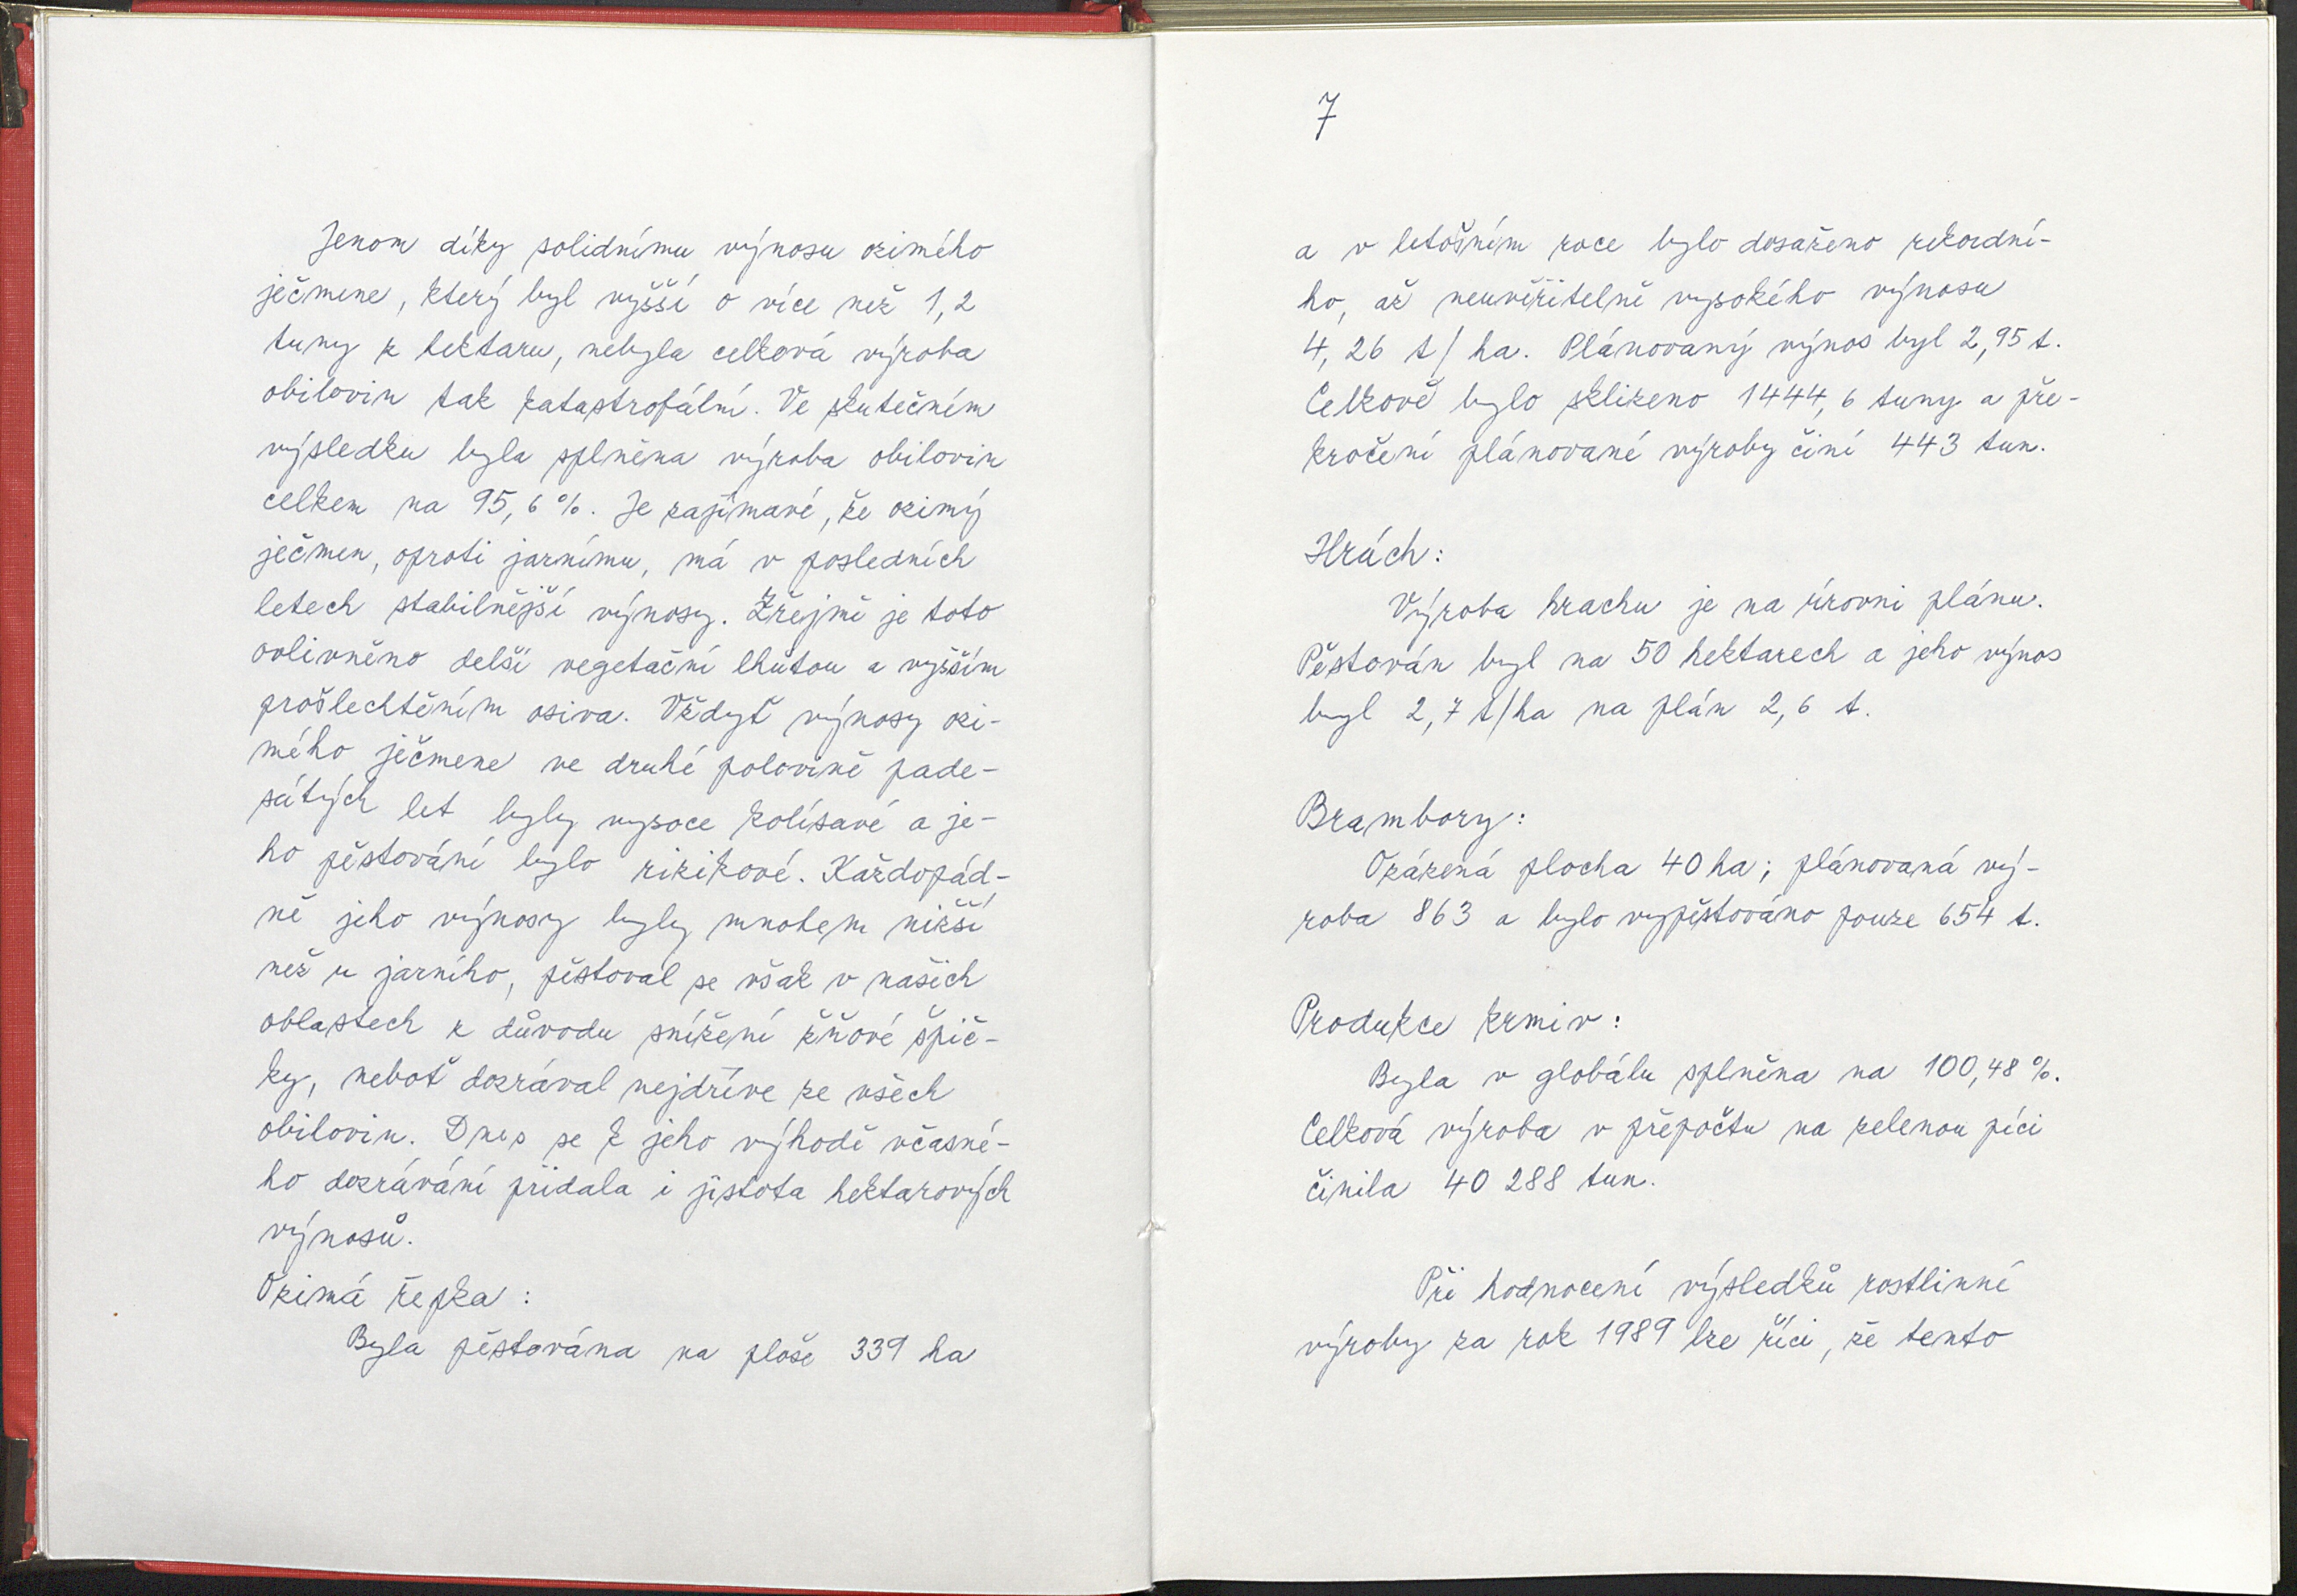 Jenom díky solidnímu výnosu ozimého
ječmene, který byl vyšší o více než 1,2
tuny z hektaru, nebyla celková výroba
obilovin tak katastrofální. Ve skutečném
výsledku byla splněna výroba obilovin
celkem na 95,6 %. Je zajímavé, že ozimý
ječmen, oproti jarnímu, má v posledních
letech stabilnější výnosy. Zřejmě je toto
ovlivněno delší vegetační lhůtou a vyšším
prošlechtěním osiva. Vždyť výnosy ozi-
mého ječmene ve druhé polovině pade-
sátých let byly vysoce kolísavé a je-
ho pěstování bylo rizikové. Každopád-
ně jeho výnosy byly mnohem nižší
než u jarního, pěstoval se však v našich
oblastech z důvodu snížení žňové špič-
ky, neboť dozrával nejdříve ze všech
obilovin. Dnes se k jeho výhodě včasné-
ho dozrávání přidala i jistota hektarových
výnosů.
Ozimá řepka:
Byla pěstována na ploše 339 ha
7
a v letošním roce bylo dosaženo rekordní-
ho, až neuvěřitelně vysokého výnosu
4,26 t/ha. Plánovaný výnos byl 2,95 t.
Celkově bylo sklizeno 1444,6 tuny a pře-
kročení plánované výroby činí 443 tun.
Hrách:
Výroba hrachu je na úrovni plánu.
Pěstován byl na 50 hektarech a jeho výnos
byl 2,7 t/ha na plán 2,6 t.
Brambory:
Ozázená plocha 40 ha; plánovaná vý-
roba 863 a bylo vypěstováno pouze 654 t.
Produkce krmiv:
Byla v globálu splněna na 100,48 %.
Celková výroba v přepočtu na zelenou píci
činila 40 288 tun.
Při hodnocení výsledků rostlinné
výroby za rok 1989 lze říci, že tento